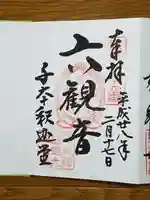 奉拝
平成廿八年
二月十七日
六観音
千本釈迦堂